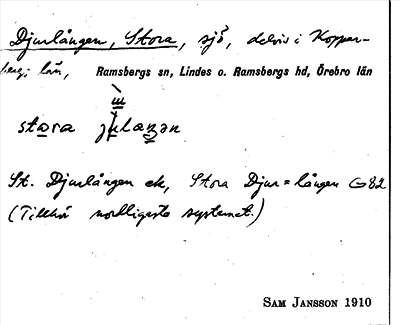 Djurlången, Stora, sjö, delvis i Koppar-
bergs län, Ramsbergs sn, Lindes o. Ramsbergs hd, Örebro län
stora
St. Djurlången ek, Stora Djur=lången G82
(Tillhör nordligaste systemet.)
SAM JANSSON 1910